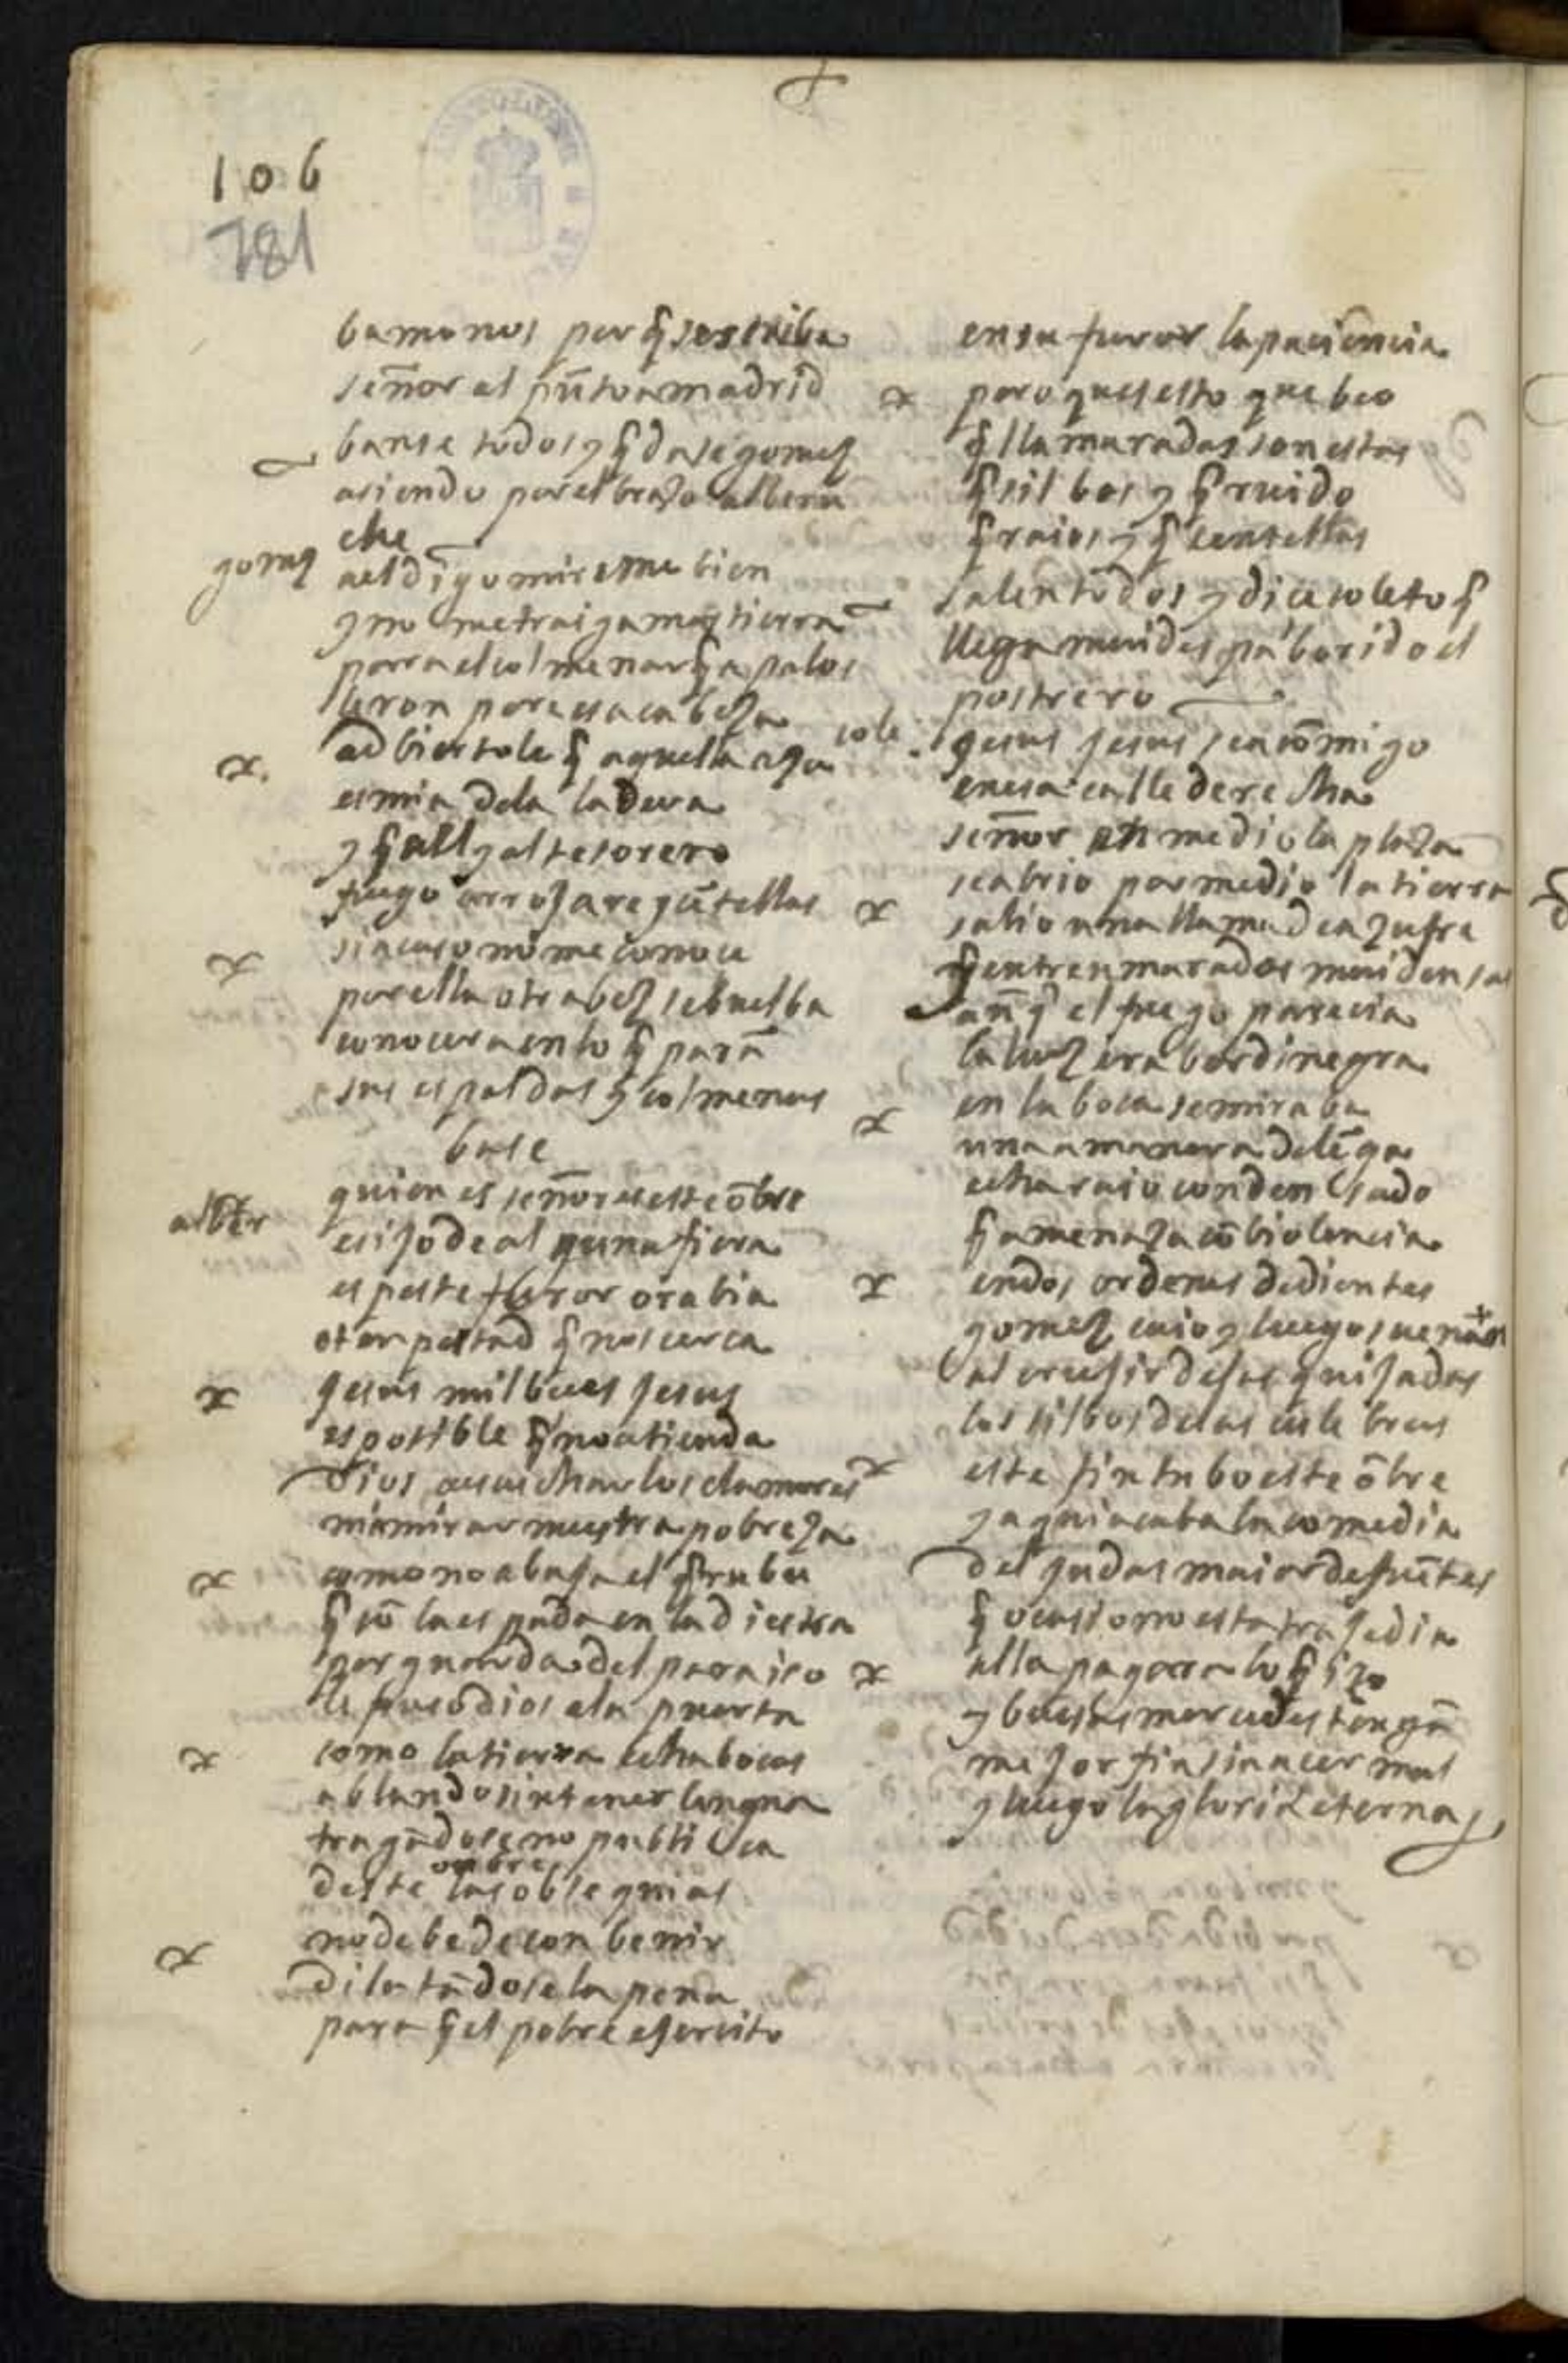 106
781
bamonos por q̃ se escriba
señor al pũto a madrid
banse todos y q̃dase gomez
asiendo por el brazo alberu
che
gomez
a el digo mireme bien
y no me traiga mas tierra
para el colmenar q̃ a palos
leron por esa cabeza
adbiertole q̃ aquella aza
es mia de la ladera
y q̃ all y al tesorero
fuego arrojare y cẽtellas
si acaso no me conoce
por ella otra bez se buelba
conocera en lo q̃ parã
sus espaldas y colmenas
base
alber
quien es señor este õbre
es ijo de alguna fiera
es peste furor o rabia
o tempestad q̃ nos cerca
jesus mil beces jesus
es posible q̃ no atienda
dios a escuchar los clamores
ni a mirar nuestra pobreza
como no abaja el q̃rubĩ
q̃ cõ la espada en la diestra
por guarda del paraiso
le puso dios a la puerta
como la tierra echa bocas
ablando sin tener lengua
tragãdose no publica
deste onbre las obsequias
no debe de conbenir
dilatãdose la pena
para q̃ el pobre ejercite
en su furor la paciencia
pero ques esto que beo
q̃ llamaradas son estas
q̃ silbos y q̃ ruido
q̃ raios y q̃ centellas
salen todos y dice coleto q̃
llega mendes paborido el
postrero
cole
jesus jesus sea cõmigo
en esa calle derecha
señor en medio la plaza
se abrio por medio la tierra
salio una llama de azufre
q̃ entre
anq̃ el fuego parecia
la luz era bordinegra
en la boca se miraba
una a manera de lẽgua
echa raio condensado
q̃ amenaza cõ biolencia
en dos ordenes de dientes
gomez caio y luego suenan
al crujir de sus quijadas
los silbos de las culebras
este fin tubo este õbre
y aqui acaba la comedia
del judas maior de fuẽtes
q̃ ocasiono esta trajedia
alla pagara lo q̃ izo
y buesas mercedes tengã
mejor fin sin acer mal
y luego la gloria eterna